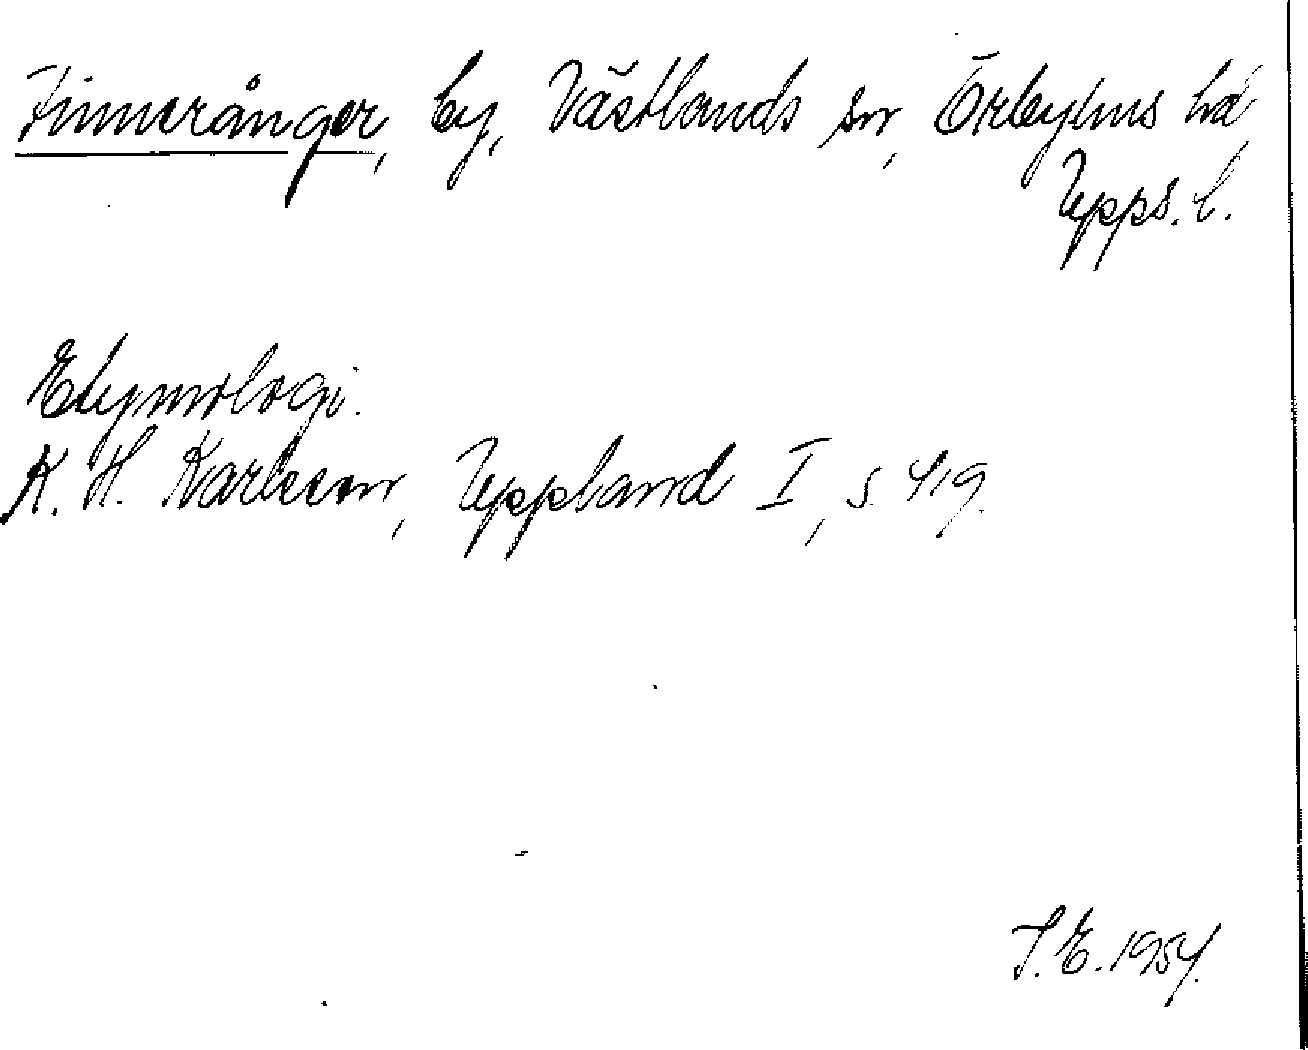 Finnerånger, by, Västlands sn, Örbyhus hd,
Upps. l.
Etymologi.
K. H. Karlsson, Uppland I, s. 419.
I. E. 1954.